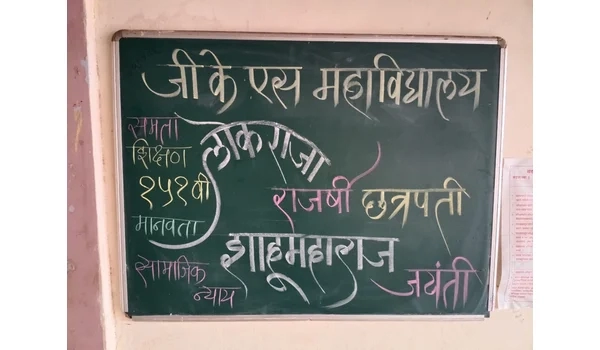 जी के एस महाविद्यालय
समता
शिक्षण
१५१वी
मानवता
सामाजिक
न्याय
लोकराजा
राजर्षी छत्रपती
शाहूमहाराज
जयंती